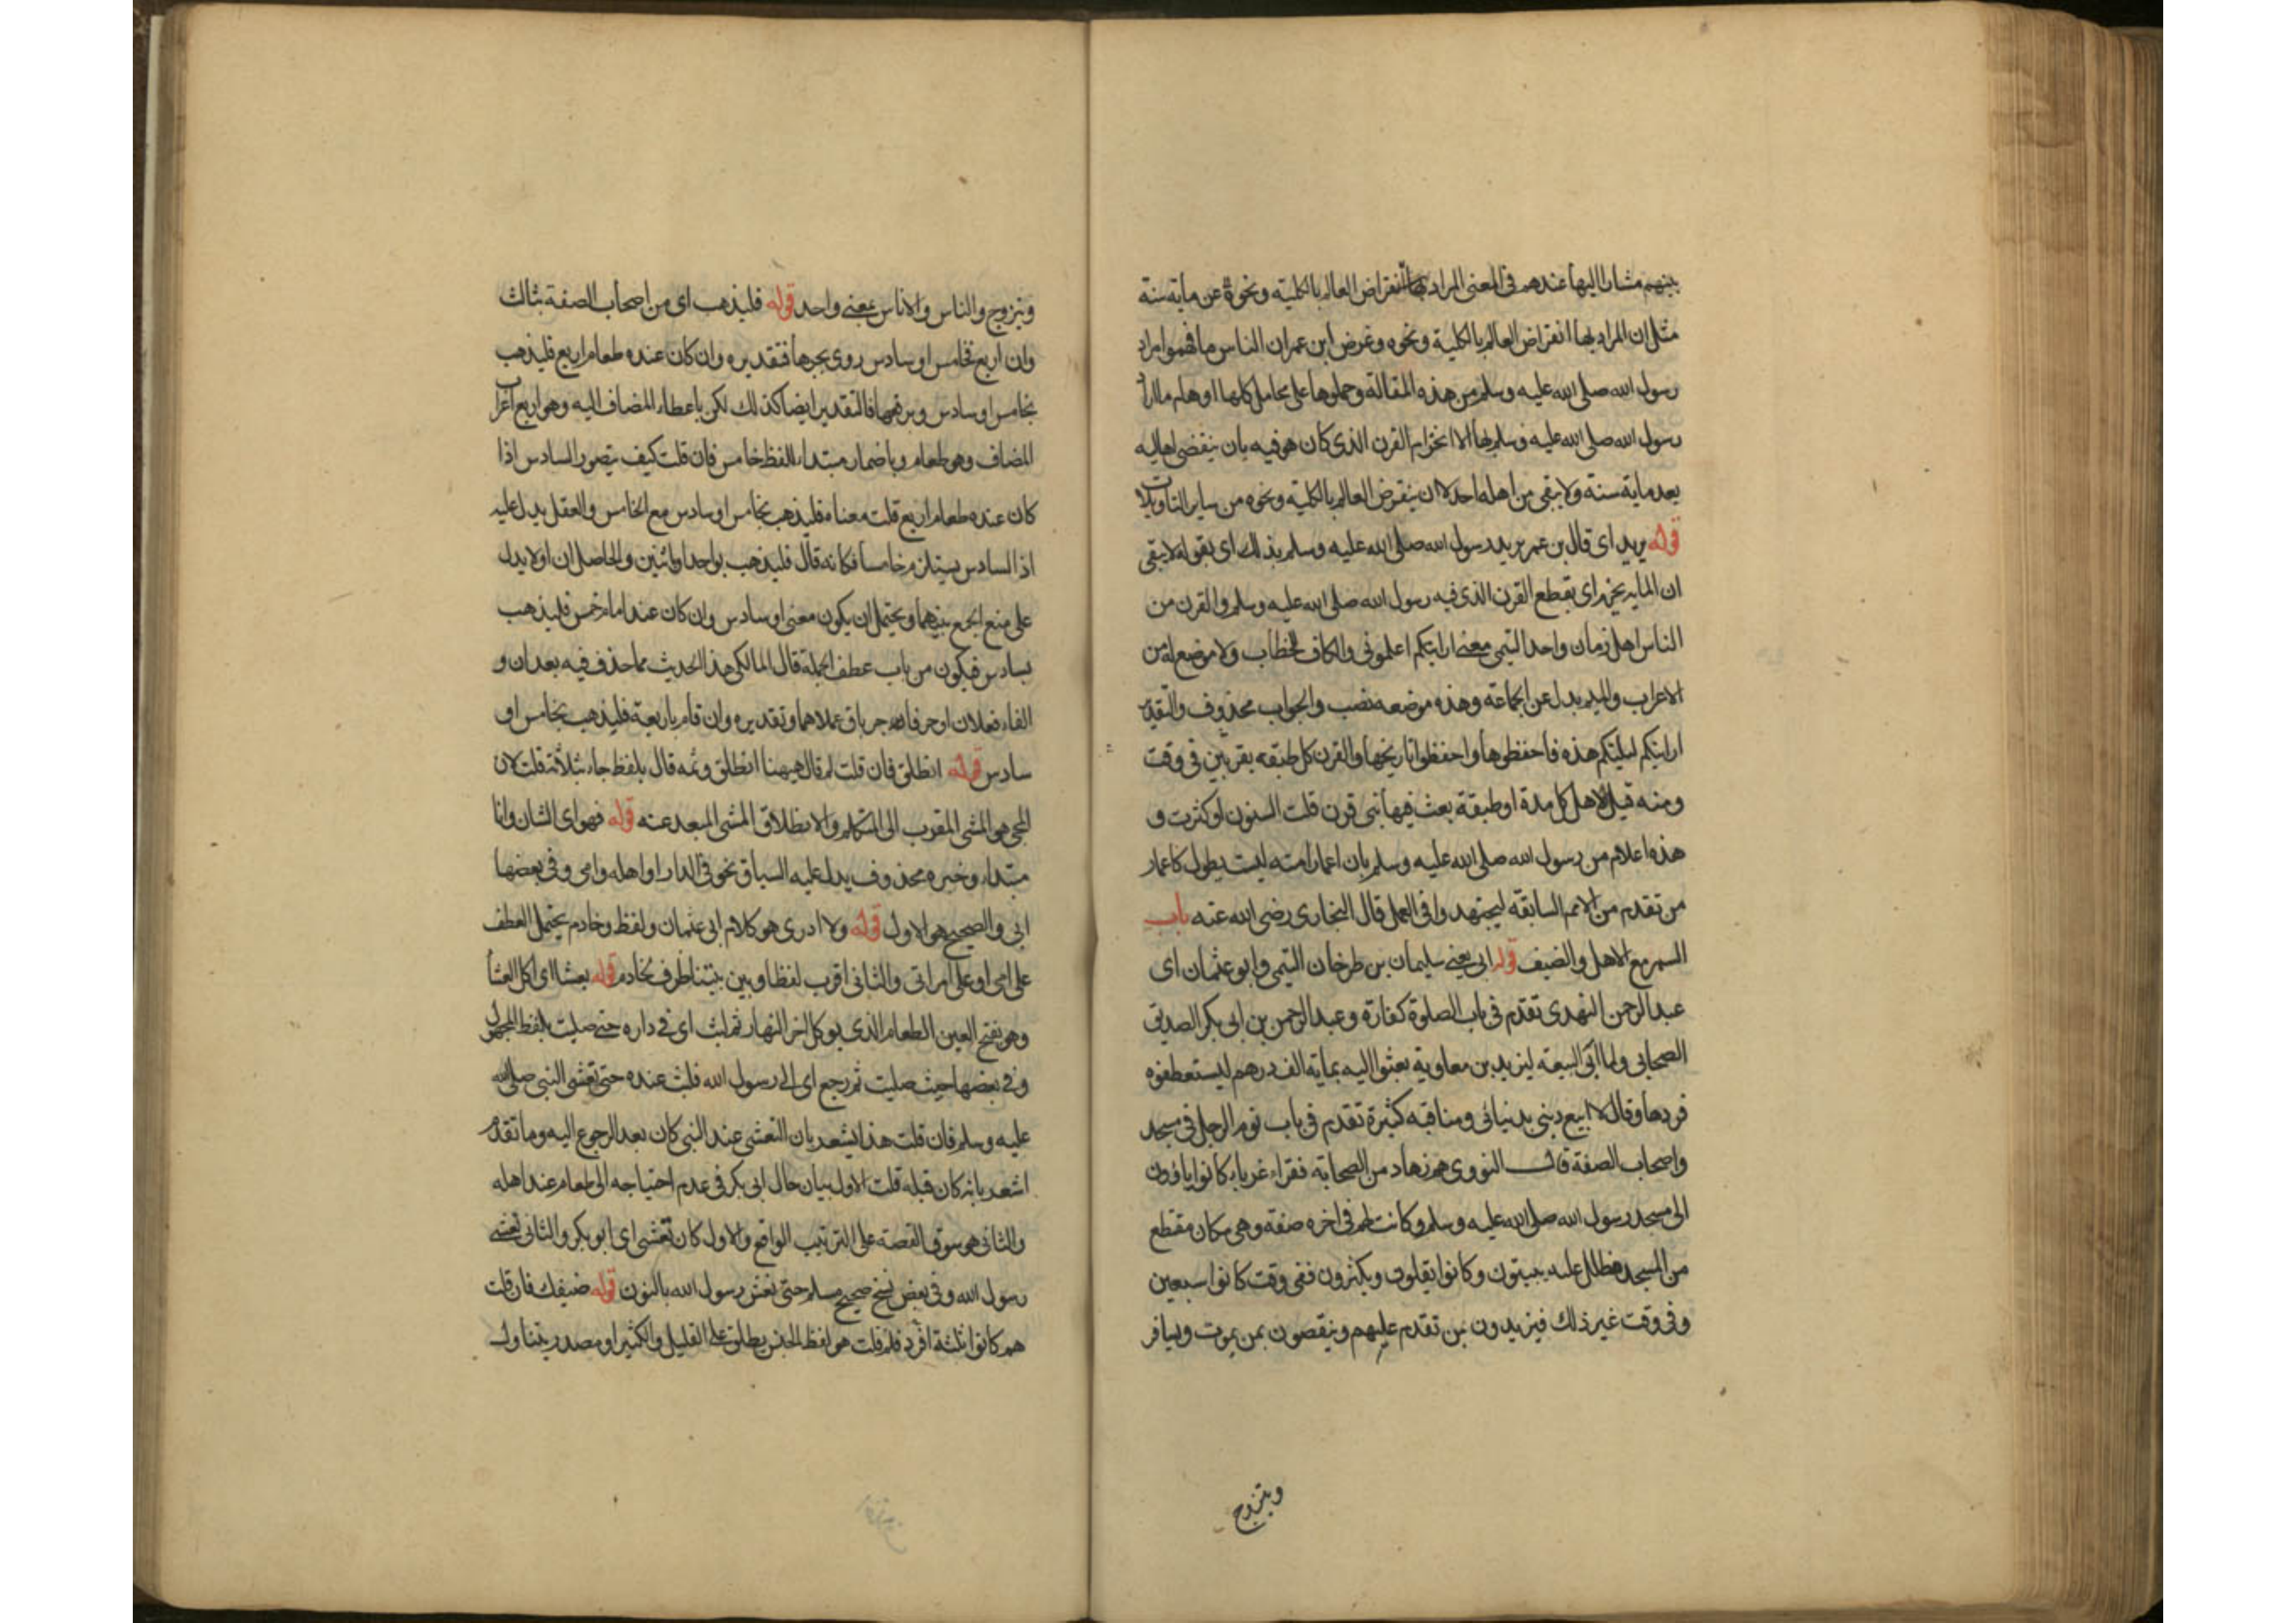 بينهم مشارا اليها عندهم في المعنى المراد بها انقراض العالم بالكلية ونحوه عن ماية سنة
مثل ان المراد بها انقراض العالم بالكلية ونحوه وغرض ابن عمر ان الناس ما فهموا مراد
رسول الله صلى الله عليه وسلم من هذه المقالة وحملوها على محامل كلها اوهام ما اراد
رسول الله صلى الله عليه وسلم بها الا انخرام القرن الذى كان هو فيه بان ينقضى اهاليه
بعد ماية سنة ولا يبقى من اهله احد لا ان ينقرض العالم بالكلية ونحوه من ساير التاويلات
قوله يريد اى قال بن عمر يريد رسول الله صلى الله عليه وسلم بذلك اى بقوله لا يبقى
ان الماية يخرم اى يقطع القرن الذى فيه رسول الله صلى الله عليه وسلم والقرن من
الناس اهل زمان واحد التيمى معنى ارايتكم اعلمونى والكاف للخطاب ولا موضع له من
الاعراب والميم يدل عن الجماعة وهذه موضعه نصب والجواب محذوف والتقدير
ارايتكم ليلتكم هذه فاحفظوها واحفظوا تاريخها والقرن كل طبقه يقربين فى وقت
ومنه قيل لاهل كل مدة او طبقة بعث فيها نبى قرن قلت السنون او كثرت و
هذه اعلام من رسول الله صلى الله عليه وسلم بان اعمار امته ليت يطول كاعمار
من تقدم من الامم السابقه ليجتهدوا فى العمل قال البخارى رضى الله عنه باب
السمر مع الاهل والضيف قوله ابى يعنى سليمان بن طرخان التيمى وابو عثمان اى
عبد الرحمن النهدى تقدم فى باب الصلوة كفارة وعبد الرحمن بن ابى بكر الصديق
الصحابى ولما ابى البيعة ليزيد بن معاوية بعثوا اليه بماية الف درهم ليستعطفوه
فردها وقال لا ابيع دينى بدنيائى ومناقبه كثيرة تقدم فى باب نوم الرجل فى مسجد
واصحاب الصفة قال النووى هم زهاد من الصحابة فقراء غرباء كانوا ياوون
الى مسجد رسول الله صلى الله عليه وسلم وكانت لهم فى اخره صفة وهى مكان مقتطع
من المسجد مظلل عليه يبيتون وكانوا يقلون ويكثرون ففى وقت كانوا سبعين
وفى وقت غير ذلك فيزيدون بمن تقدم عليهم وينقصون بمن يموت ويسافر
ويتزوج
ويتزوج والناس والاناس بمعنى واحد قوله فليذهب اى من اصحاب الصفة بثالث
وان اربع فخامس او سادس روى بجرها فتقديره وان كان عنده طعام اربع فليذهب
بخامس او سادس وبرفعها فالتقدير ايضا كذلك لكن باعطاء المضاف اليه وهو اربع اعراب
المضاف وهو طعام وباضمار مبتداء للفظ خامس فان قلت كيف يتصور السادس اذا
كان عنده طعام اربع قلت معناه فليذهب بخامس او سادس مع الخامس والعقل يدل عليه
اذ السادس يستلزم خامسا فكانه قال فليذهب بواحد او اثنين والحاصل ان او لا يدل
على منع الجمع بينهما ويحتمل ان يكون معنى او سادس وان كان عنده طعام خمس فليذهب
بسادس فيكون من باب عطف الجملة قال المالكى هذا الحديث مما حذف فيه بعد ان و
الفاء فعلان او حرفا جر باق عملاهما وتقديره وان قام باربعة فليذهب بخامس او
سادس قوله انطلق فان قلت لم قال هيهنا انطلق وثمه قال بلفظ جاء بثلاثة قلت لان
المجى هو المشى المقرب الى المتكلم والانطلاق المشى المبعد عنه قوله فهو اى الشان وانا
مبتداء وخبره محذوف يدل عليه السياق نحو فى الدار او اهله وامى وفى بعضها
ابى والصحيح هو الاول قوله ولا ادرى هو كلام ابى عثمان ولفظ وخادم يحتمل العطف
على امى او على امراتى والثانى اقرب لفظا وبين بيتنا ظرف لخادم قوله تعشا اى اكل العشا
وهو بفتح العين الطعام الذى يوكل اخر النهار ثم لبث اى فى داره حتى صليت بلفظ المجهول
وفى بعضها حيث صليت ثم رجع اى الى رسول الله فلبث عنده حتى تعشى النبى صلى الله
عليه وسلم فان قلت هذا يشعر بان التعشى عند النبى كان بعد الرجوع اليه وما تقدم
اشعر بانه كان قبله قلت الاول بيان حال ابى بكر فى عدم احتياجه الى طعام عند اهله
والثانى هو سوق القصة على الترتيب الواقع والاول كان تعشى اى ابو بكر والثانى تعشى
رسول الله وفى بعض نسخ صحيح مسلم حتى نعس رسول الله بالنون قوله ضيفك فان قلت
هم كانوا ثلثة افرد قلت هو لفظ الجنس يطلق على القليل والكثير او مصدر يتناول